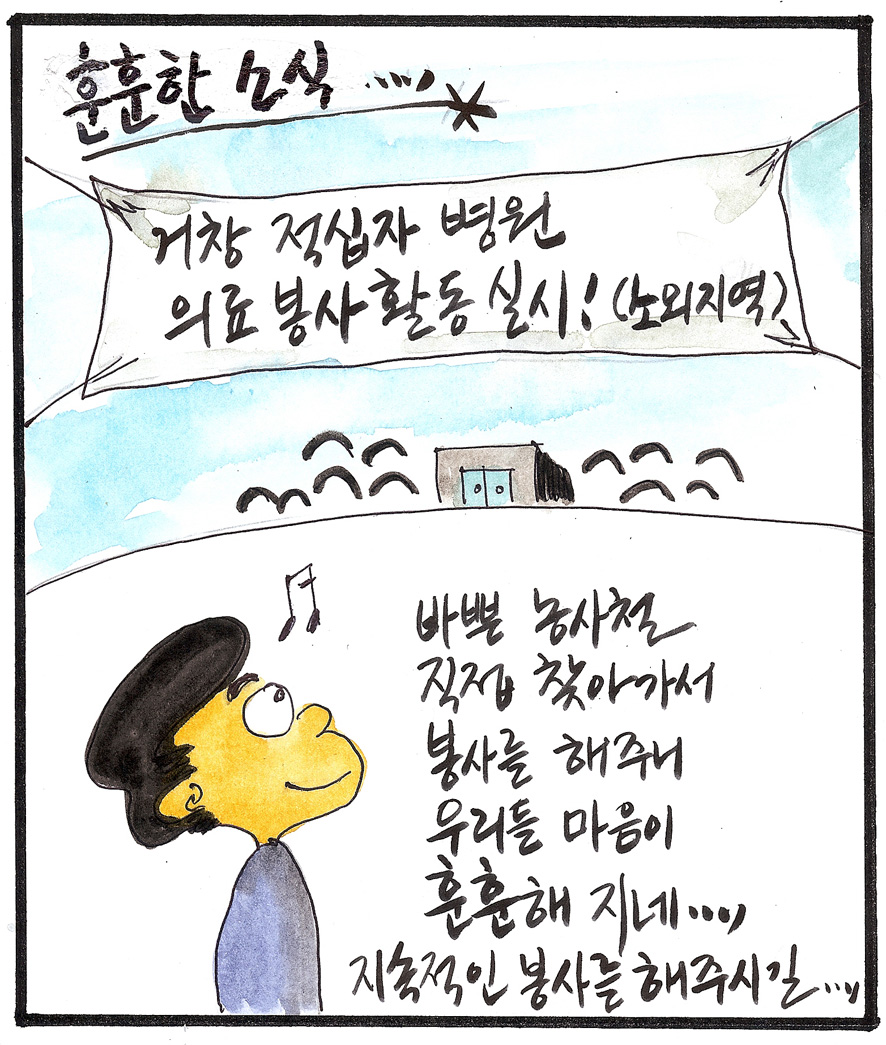 훈훈한 소식....
거창 적십자 병원
의료 봉사 활동 실시! (소외지역)
바쁜 농사철
직접 찾아가서
봉사를 해주니
우리들 마음이
훈훈해 지네....
지속적인 봉사를 해주시길....